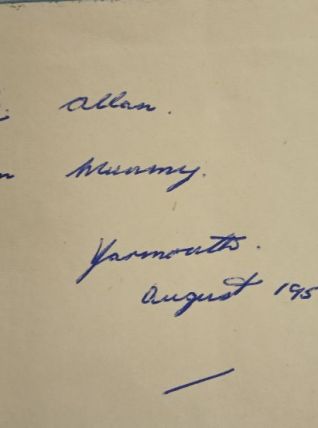 Allan.
Mummy.
Yarmouth.
August 195